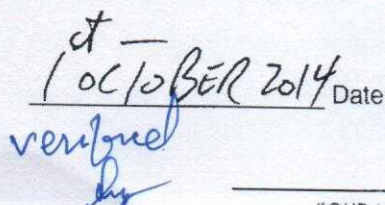 1st OCTOBER 2014 Date
verified